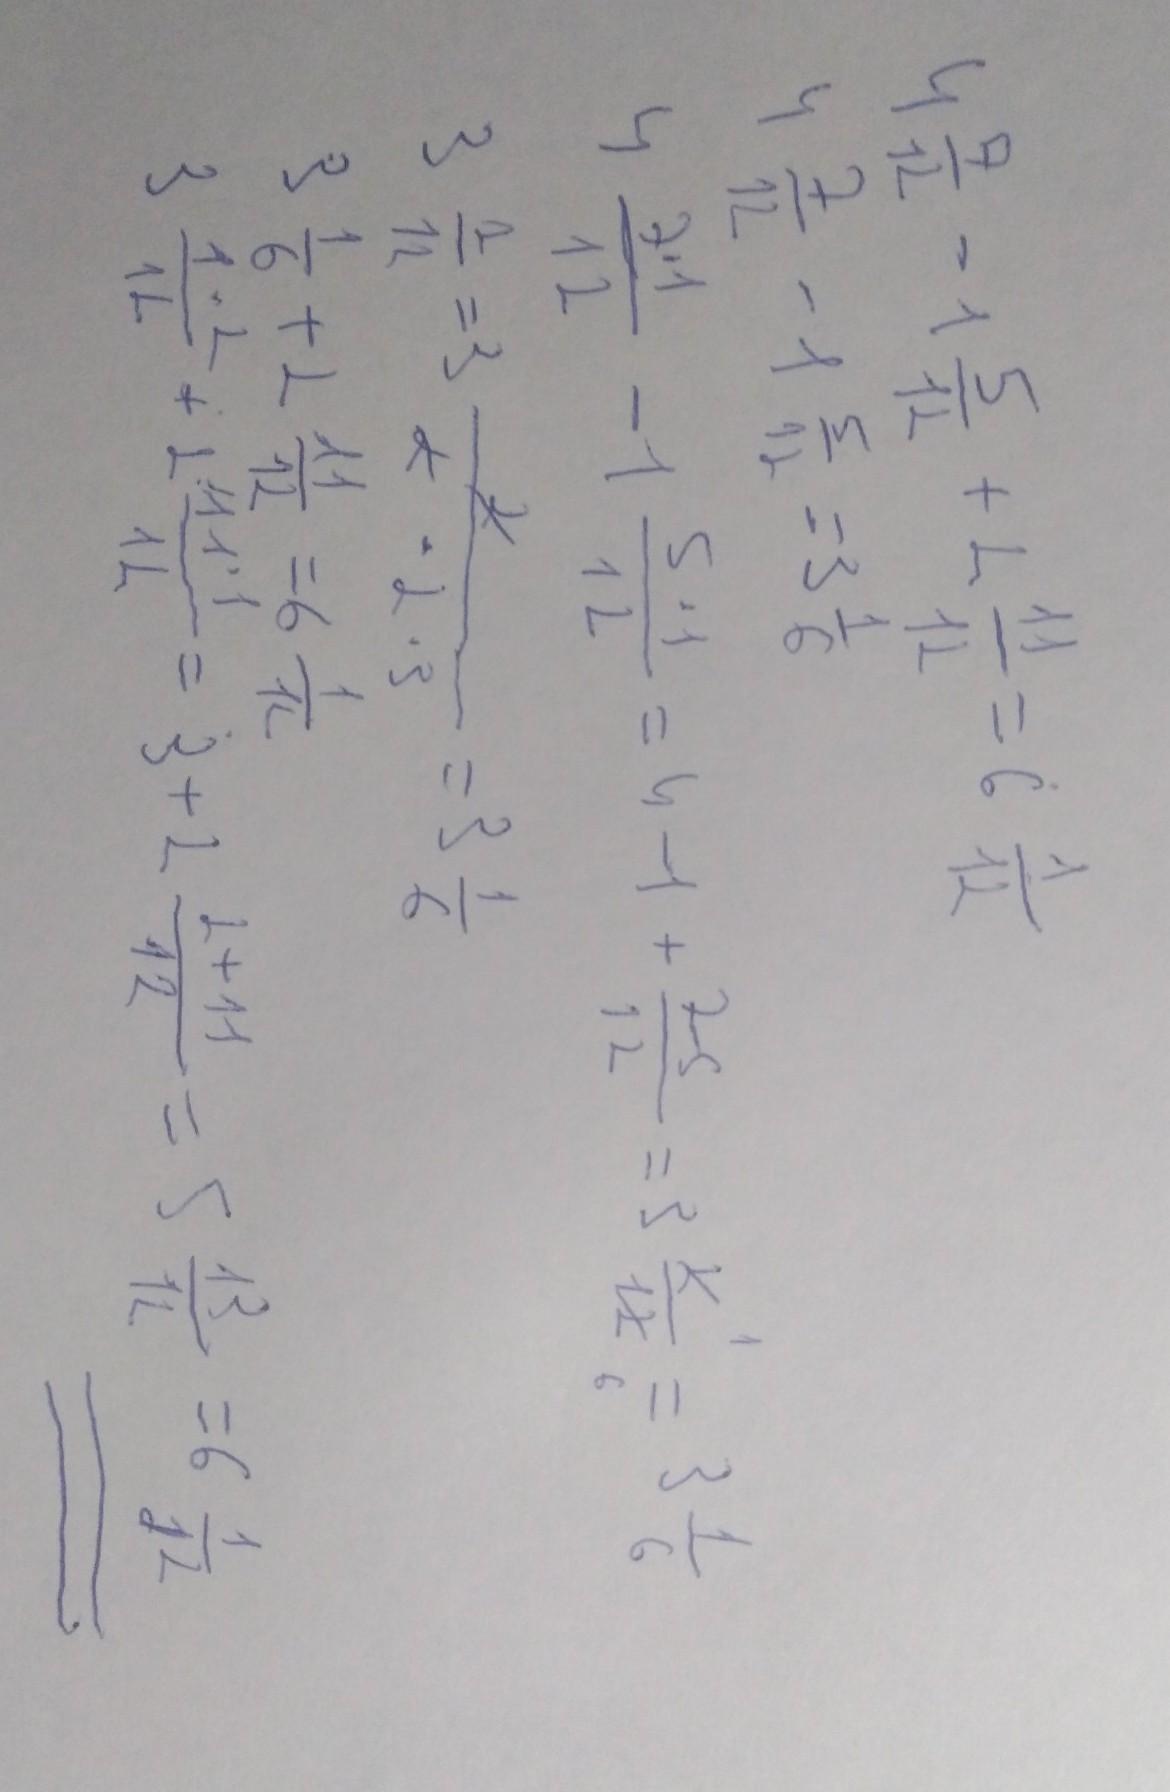 4 7/12 - 1 5/12 + 2 11/12 = 6 1/12
4 7/12 - 1 5/12 = 3 1/6
4 7·1/12 - 1 5·1/12 = 4 - 1 + 7-5/12 = 3 2/12 = 3 1/6
3 2/12 = 3 2/2·2·3 = 3 1/6
3 1/6 + 2 11/12 = 6 1/12
3 1·2/12 + 2 11·1/12 = 3 + 2 2+11/12 = 5 13/12 = 6 1/12